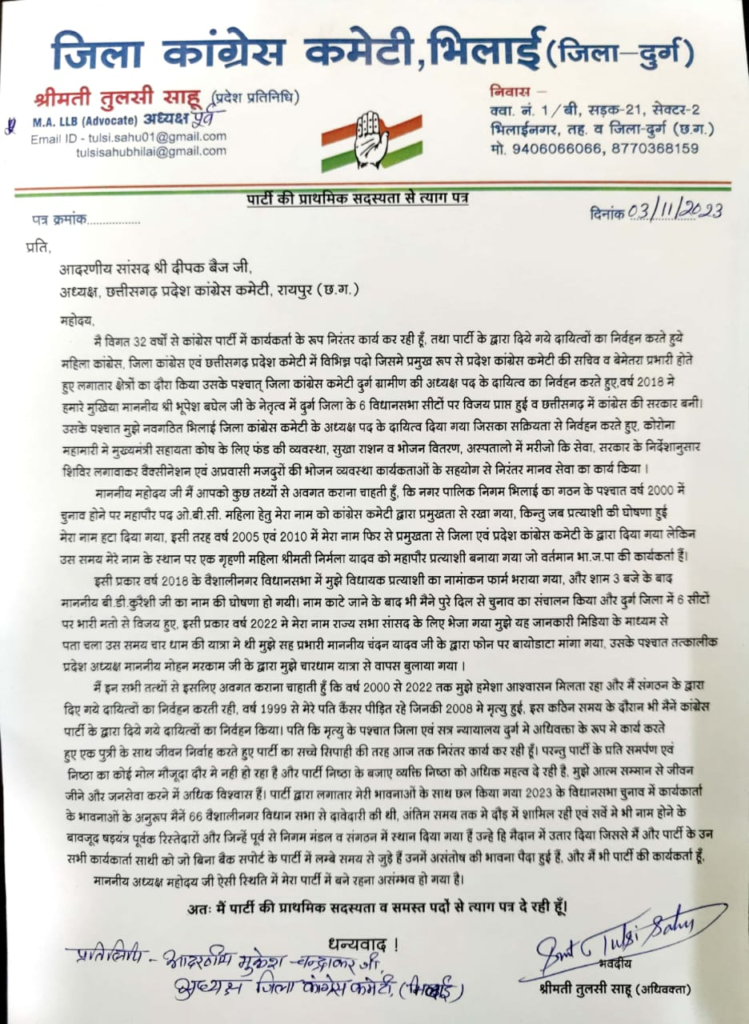 जिला कांग्रेस कमेटी, भिलाई (जिला–दुर्ग)
श्रीमती तुलसी साहू (प्रदेश प्रतिनिधि)
M.A. LLB (Advocate) अध्यक्ष पूर्व
Email ID - tulsi.sahu01@gmail.com
tulsisahubhilai@gmail.com
निवास –
क्वा. नं. 1/बी, सड़क-21, सेक्टर-2
भिलाईनगर, तह. व जिला-दुर्ग (छ.ग.)
मो. 9406066066, 8770368159
पार्टी की प्राथमिक सदस्यता से त्याग पत्र
पत्र क्रमांक..............
दिनांक 03/11/2023
प्रति,
आदरणीय सांसद श्री दीपक बैज जी,
अध्यक्ष, छत्तीसगढ़ प्रदेश कांग्रेस कमेटी, रायपुर (छ.ग.)
महोदय,
मै विगत 32 वर्षो से कांग्रेस पार्टी में कार्यकर्ता के रूप निरंतर कार्य कर रही हूँ, तथा पार्टी के द्वारा दिये गये दायित्वों का निर्वहन करते हुये
महिला कांग्रेस, जिला कांग्रेस एवं छत्तीसगढ़ प्रदेश कमेटी में विभिन्न पदो जिसमे प्रमुख रूप से प्रदेश कांग्रेस कमेटी की सचिव व बेमेतरा प्रभारी होते
हुए लगातार क्षेत्रों का दौरा किया उसके पश्चात् जिला कांग्रेस कमेटी दुर्ग ग्रामीण की अध्यक्ष पद के दायित्व का निर्वहन करते हुए,वर्ष 2018 मे
हमारे मुखिया माननीय श्री भूपेश बघेल जी के नेतृत्व में दुर्ग जिला के 6 विधानसभा सीटों पर विजय प्राप्त हुई व छत्तीसगढ़ में कांग्रेस की सरकार बनी।
उसके पश्चात मुझे नवगठित भिलाई जिला कांग्रेस कमेटी के अध्यक्ष पद के दायित्व दिया गया जिसका सक्रियता से निर्वहन करते हुए, कोरोना
महामारी मे मुख्यमंत्री सहायता कोष के लिए फंड की व्यवस्था, सुखा राशन व भोजन वितरण, अस्पतालो में मरीजो कि सेवा, सरकार के निर्देशानुसार
शिविर लगावाकर वैक्सीनेशन एवं अप्रवासी मजदुरों की भोजन व्यवस्था कार्यकताओं के सहयोग से निरंतर मानव सेवा का कार्य किया ।
माननीय महोदय जी मैं आपको कुछ तथ्यों से अवगत कराना चाहती हूँ, कि नगर पालिक निगम भिलाई का गठन के पश्चात वर्ष 2000 में
चुनाव होने पर महापौर पद ओ.बी.सी. महिला हेतु मेरा नाम को कांग्रेस कमेटी द्वारा प्रमुखता से रखा गया, किन्तु जब प्रत्याशी की घोषणा हुई
मेरा नाम हटा दिया गया, इसी तरह वर्ष 2005 एवं 2010 में मेरा नाम फिर से प्रमुखता से जिला एवं प्रदेश कांग्रेस कमेटी के द्वारा दिया गया लेकिन
उस समय मेरे नाम के स्थान पर एक गृहणी महिला श्रीमती निर्मला यादव को महापौर प्रत्याशी बनाया गया जो वर्तमान भा.ज.पा की कार्यकर्ता हैं।
इसी प्रकार वर्ष 2018 के वैशालीनगर विधानसभा में मुझे विधायक प्रत्याशी का नामांकन फार्म भराया गया, और शाम 3 बजे के बाद
माननीय बी.डी.कुरैशी जी का नाम की घोषणा हो गयी। नाम काटे जाने के बाद भी मैने पुरे दिल से चुनाव का संचालन किया और दुर्ग जिला में 6 सीटों
पर भारी मतो से विजय हुए, इसी प्रकार वर्ष 2022 मे मेरा नाम राज्य सभा सांसद के लिए भेजा गया मुझे यह जानकारी मिडिया के माध्यम से
पता चला उस समय चार धाम की यात्रा मे थी मुझे सह प्रभारी माननीय चंदन यादव जी के द्वारा फोन पर बायोडाटा मांगा गया, उसके पश्चात तत्कालीक
प्रदेश अध्यक्ष माननीय मोहन मरकाम जी के द्वारा मुझे चारधाम यात्रा से वापस बुलाया गया ।
मैं इन सभी तत्थों से इसलिए अवगत कराना चाहाती हूँ कि वर्ष 2000 से 2022 तक मुझे हमेशा आश्वासन मिलता रहा और मैं संगठन के द्वारा
दिए गये दायित्वों का निर्वहन करती रही, वर्ष 1999 से मेरे पति कैंसर पीड़ित रहे जिनकी 2008 मे मृत्यु हुई, इस कठिन समय के दौरान भी मैनें कांग्रेस
पार्टी के द्वारा दिये गये दायित्वों का निर्वहन किया। पति कि मृत्यु के पश्चात जिला एवं सत्र न्यायालय दुर्ग मे अधिवक्ता के रूप मे कार्य करते
हुए एक पुत्री के साथ जीवन निर्वाह करते हुए पार्टी का सच्चे सिपाही की तरह आज तक निरंतर कार्य कर रही हूँ। परन्तु पार्टी के प्रति समर्पण एवं
निष्ठा का कोई मोल मौजूदा दौर मे नही हो रहा है और पार्टी निष्ठा के बजाए व्यक्ति निष्ठा को अधिक महत्व दे रही है, मुझे आत्म सम्मान से जीवन
जीने और जनसेवा करने में अधिक विश्वास हैं। पार्टी द्वारा लगातार मेरी भावनाओं के साथ छल किया गया 2023 के विधानसभा चुनाव में कार्यकार्ता
के भावनाओं के अनुरूप मैनें 66 वैशालीनगर विधान सभा से दावेदारी की थी, अंतिम समय तक मे दौड़ में शामिल रही एवं सर्वे मे भी नाम होने के
बावजूद षड़यंत्र पूर्वक रिस्तेदारों और जिन्हें पूर्व से निगम मंडल व संगठन में स्थान दिया गया हैं उन्हे हि मैदान में उतार दिया जिससे मैं और पार्टी के उन
सभी कार्यकार्ता साथी को जो बिना बैक सपोर्ट के पार्टी में लम्बे समय से जुड़े हैं उनमें असंतोष की भावना पैदा हुई हैं, और मैं भी पार्टी की कार्यकर्ता हूँ,
माननीय अध्यक्ष महोदय जी ऐसी स्थिति में मेरा पार्टी में बने रहना असंम्भव हो गया है।
अतः मैं पार्टी की प्राथमिक सदस्यता व समस्त पदों से त्याग पत्र दे रही हूँ।
धन्यवाद !
प्रतिलिपि - आदरणीय मुकेश चन्द्राकर जी,
अध्यक्ष जिला कांग्रेस कमेटी, (भिलाई)
Smt Tulsi Sahu
भवदीय
श्रीमती तुलसी साहू (अधिवक्ता)